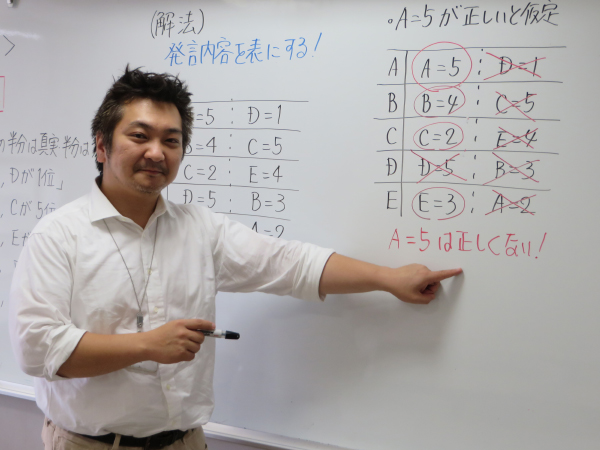 (解法)
発言内容を表にする!
の粉は真実 粉は
Dが1位」
Cが5位
=5 : D=1
B=4 : C=5
C=2 : E=4
D=5 : B=3
A=2
。A=5が正しいと仮定
A A=5 : D=1
B B=4 : C=5
C C=2 : E=4
D D=5 : B=3
E E=3 : A=2
A=5は正しくない!